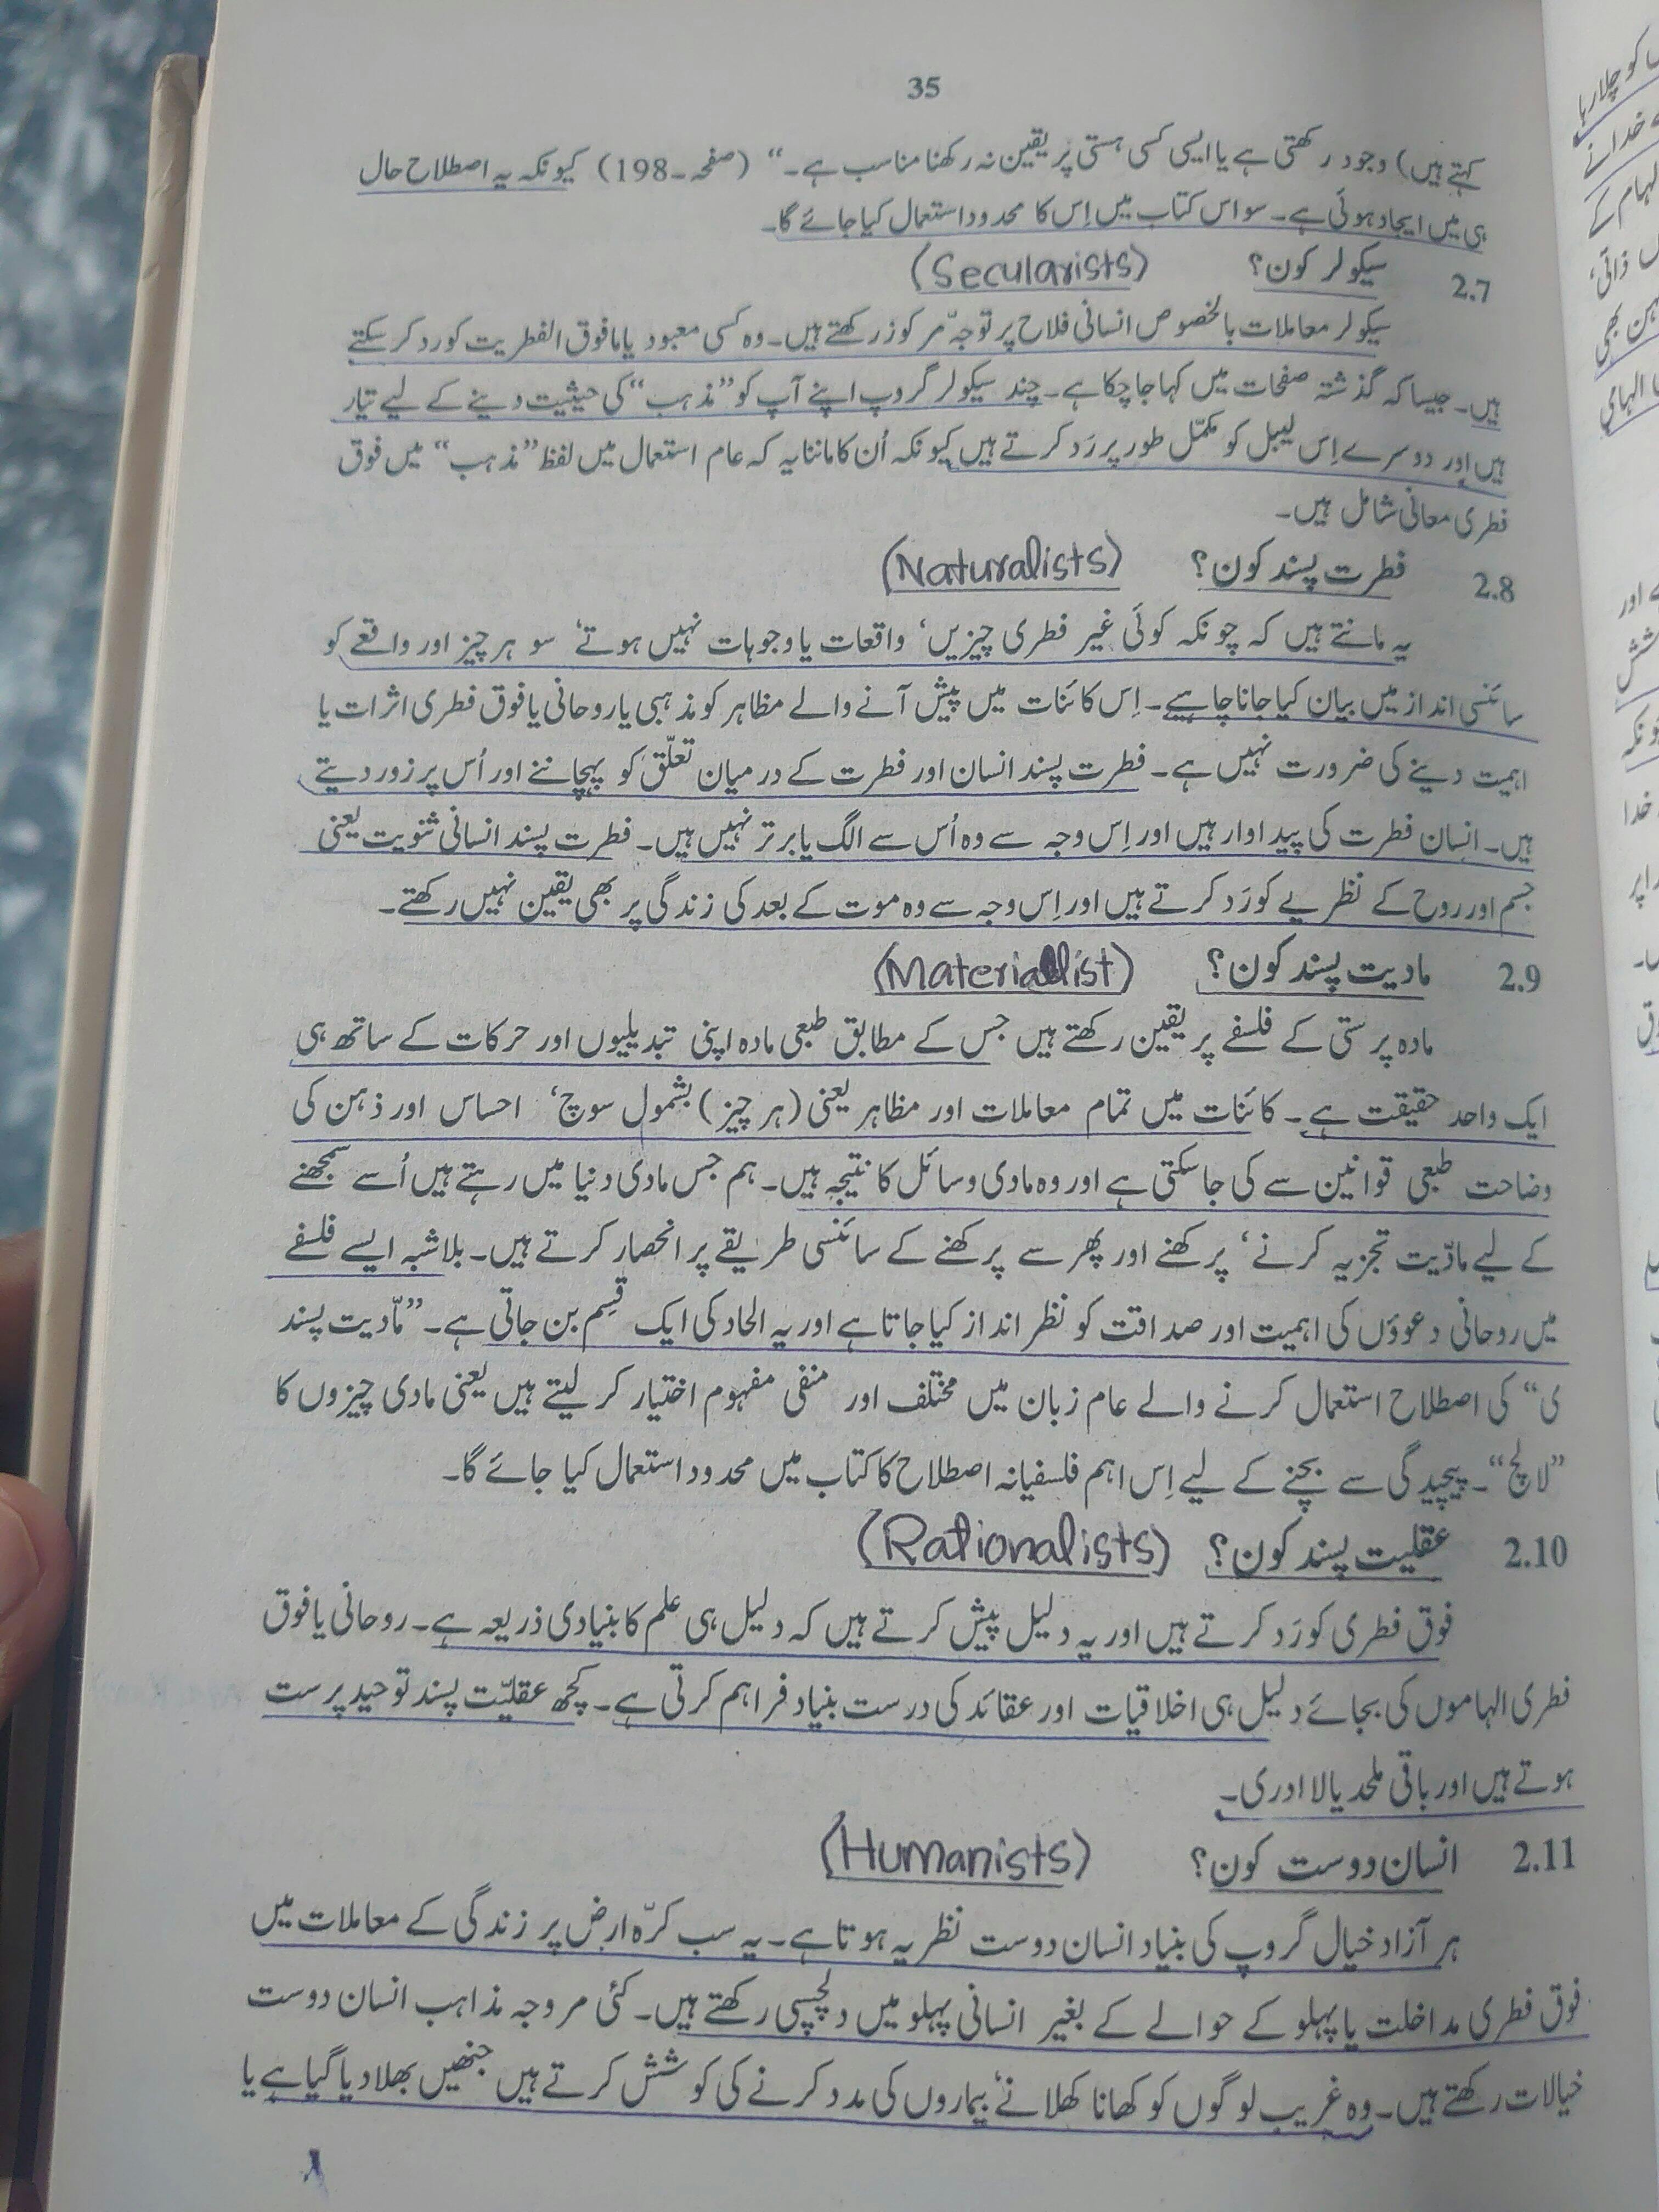 35
کہتے ہیں) وجود رکھتی ہے یا ایسی کسی ہستی پر یقین نہ رکھنا مناسب ہے۔“ (صفحہ۔198) کیونکہ یہ اصطلاح حال
ہی میں ایجاد ہوئی ہے۔ سو اس کتاب میں اِس کا محدود استعمال کیا جائے گا۔
2.7 سیکولر کون؟ (Secularists)
سیکولر معاملات بالخصوص انسانی فلاح پر توجہّ مرکوز رکھتے ہیں۔ وہ کسی معبود یا مافوق الفطریت کو رد کر سکتے
ہیں۔ جیسا کہ گذشتہ صفحات میں کہا جا چکا ہے۔ چند سیکولر گروپ اپنے آپ کو ”مذہب“ کی حیثیت دینے کے لیے تیار
ہیں اور دوسرے اِس لیبل کو مکمّل طور پر رَد کرتے ہیں کیونکہ اُن کا ماننا یہ کہ عام استعمال میں لفظ ”مذہب“ میں فوق
فطری معانی شامل ہیں۔
2.8 فطرت پسند کون؟ (Naturalists)
یہ مانتے ہیں کہ چونکہ کوئی غیر فطری چیزیں‘ واقعات یا وجوہات نہیں ہوتے‘ سو ہر چیز اور واقعے کو
سائنسی انداز میں بیان کیا جانا چاہیے۔ اِس کائنات میں پیش آنے والے مظاہر کو مذہبی یا روحانی یا فوق فطری اثرات یا
اہمیت دینے کی ضرورت نہیں ہے۔ فطرت پسند انسان اور فطرت کے درمیان تعلّق کو پہچاننے اور اُس پر زور دیتے
ہیں۔ انسان فطرت کی پیداوار ہیں اور اِس وجہ سے وہ اُس سے الگ یا برتر نہیں ہیں۔ فطرت پسند انسانی ثنویت یعنی
جسم اور روح کے نظریے کو رَد کرتے ہیں اور اِس وجہ سے وہ موت کے بعد کی زندگی پر بھی یقین نہیں رکھتے۔
2.9 مادیت پسند کون؟ (Materialist)
مادہ پرستی کے فلسفے پر یقین رکھتے ہیں جس کے مطابق طبعی مادہ اپنی تبدیلیوں اور حرکات کے ساتھ ہی
ایک واحد حقیقت ہے۔ کائنات میں تمام معاملات اور مظاہر یعنی (ہر چیز) بشمول سوچ‘ احساس اور ذہن کی
وضاحت طبعی قوانین سے کی جاسکتی ہے اور وہ مادی وسائل کا نتیجہ ہیں۔ ہم جس مادی دنیا میں رہتے ہیں اُسے سمجھنے
کے لیے مادّیت تجزیہ کرنے‘ پرکھنے اور پھر سے پرکھنے کے سائنسی طریقے پر انحصار کرتے ہیں۔ بلاشبہ ایسے فلسفے
میں روحانی دعوؤں کی اہمیت اور صداقت کو نظر انداز کیا جاتا ہے اور یہ الحاد کی ایک قسِم بن جاتی ہے۔ ”مّادیت پسند
ی“ کی اصطلاح استعمال کرنے والے عام زبان میں مختلف اور منفی مفہوم اختیار کر لیتے ہیں یعنی مادی چیزوں کا
”لالچ“۔ پیچیدگی سے بچنے کے لیے اِس اہم فلسفیانہ اصطلاح کا کتاب میں محدود استعمال کیا جائے گا۔
2.10 عقلیت پسند کون؟ (Rationalists)
فوق فطری کو رَد کرتے ہیں اور یہ دلیل پیش کرتے ہیں کہ دلیل ہی علم کا بنیادی ذریعہ ہے۔ روحانی یا فوق
فطری الہاموں کی بجائے دلیل ہی اخلاقیات اور عقائد کی درست بنیاد فراہم کرتی ہے۔ کچھ عقلیّت پسند توحید پرست
ہوتے ہیں اور باقی ملحد یا لا ادری۔
2.11 انسان دوست کون؟ (Humanists)
ہر آزاد خیال گروپ کی بنیاد انسان دوست نظریہ ہوتا ہے۔ یہ سب کرّہ ارض پر زندگی کے معاملات میں
فوق فطری مداخلت یا پہلو کے حوالے کے بغیر انسانی پہلو میں دلچسپی رکھتے ہیں۔ کئی مروجہ مذاہب انسان دوست
خیالات رکھتے ہیں۔ وہ غریب لوگوں کو کھانا کھلانے‘ بیماروں کی مدد کرنے کی کوشش کرتے ہیں جنھیں بھلا دیا گیا ہے یا